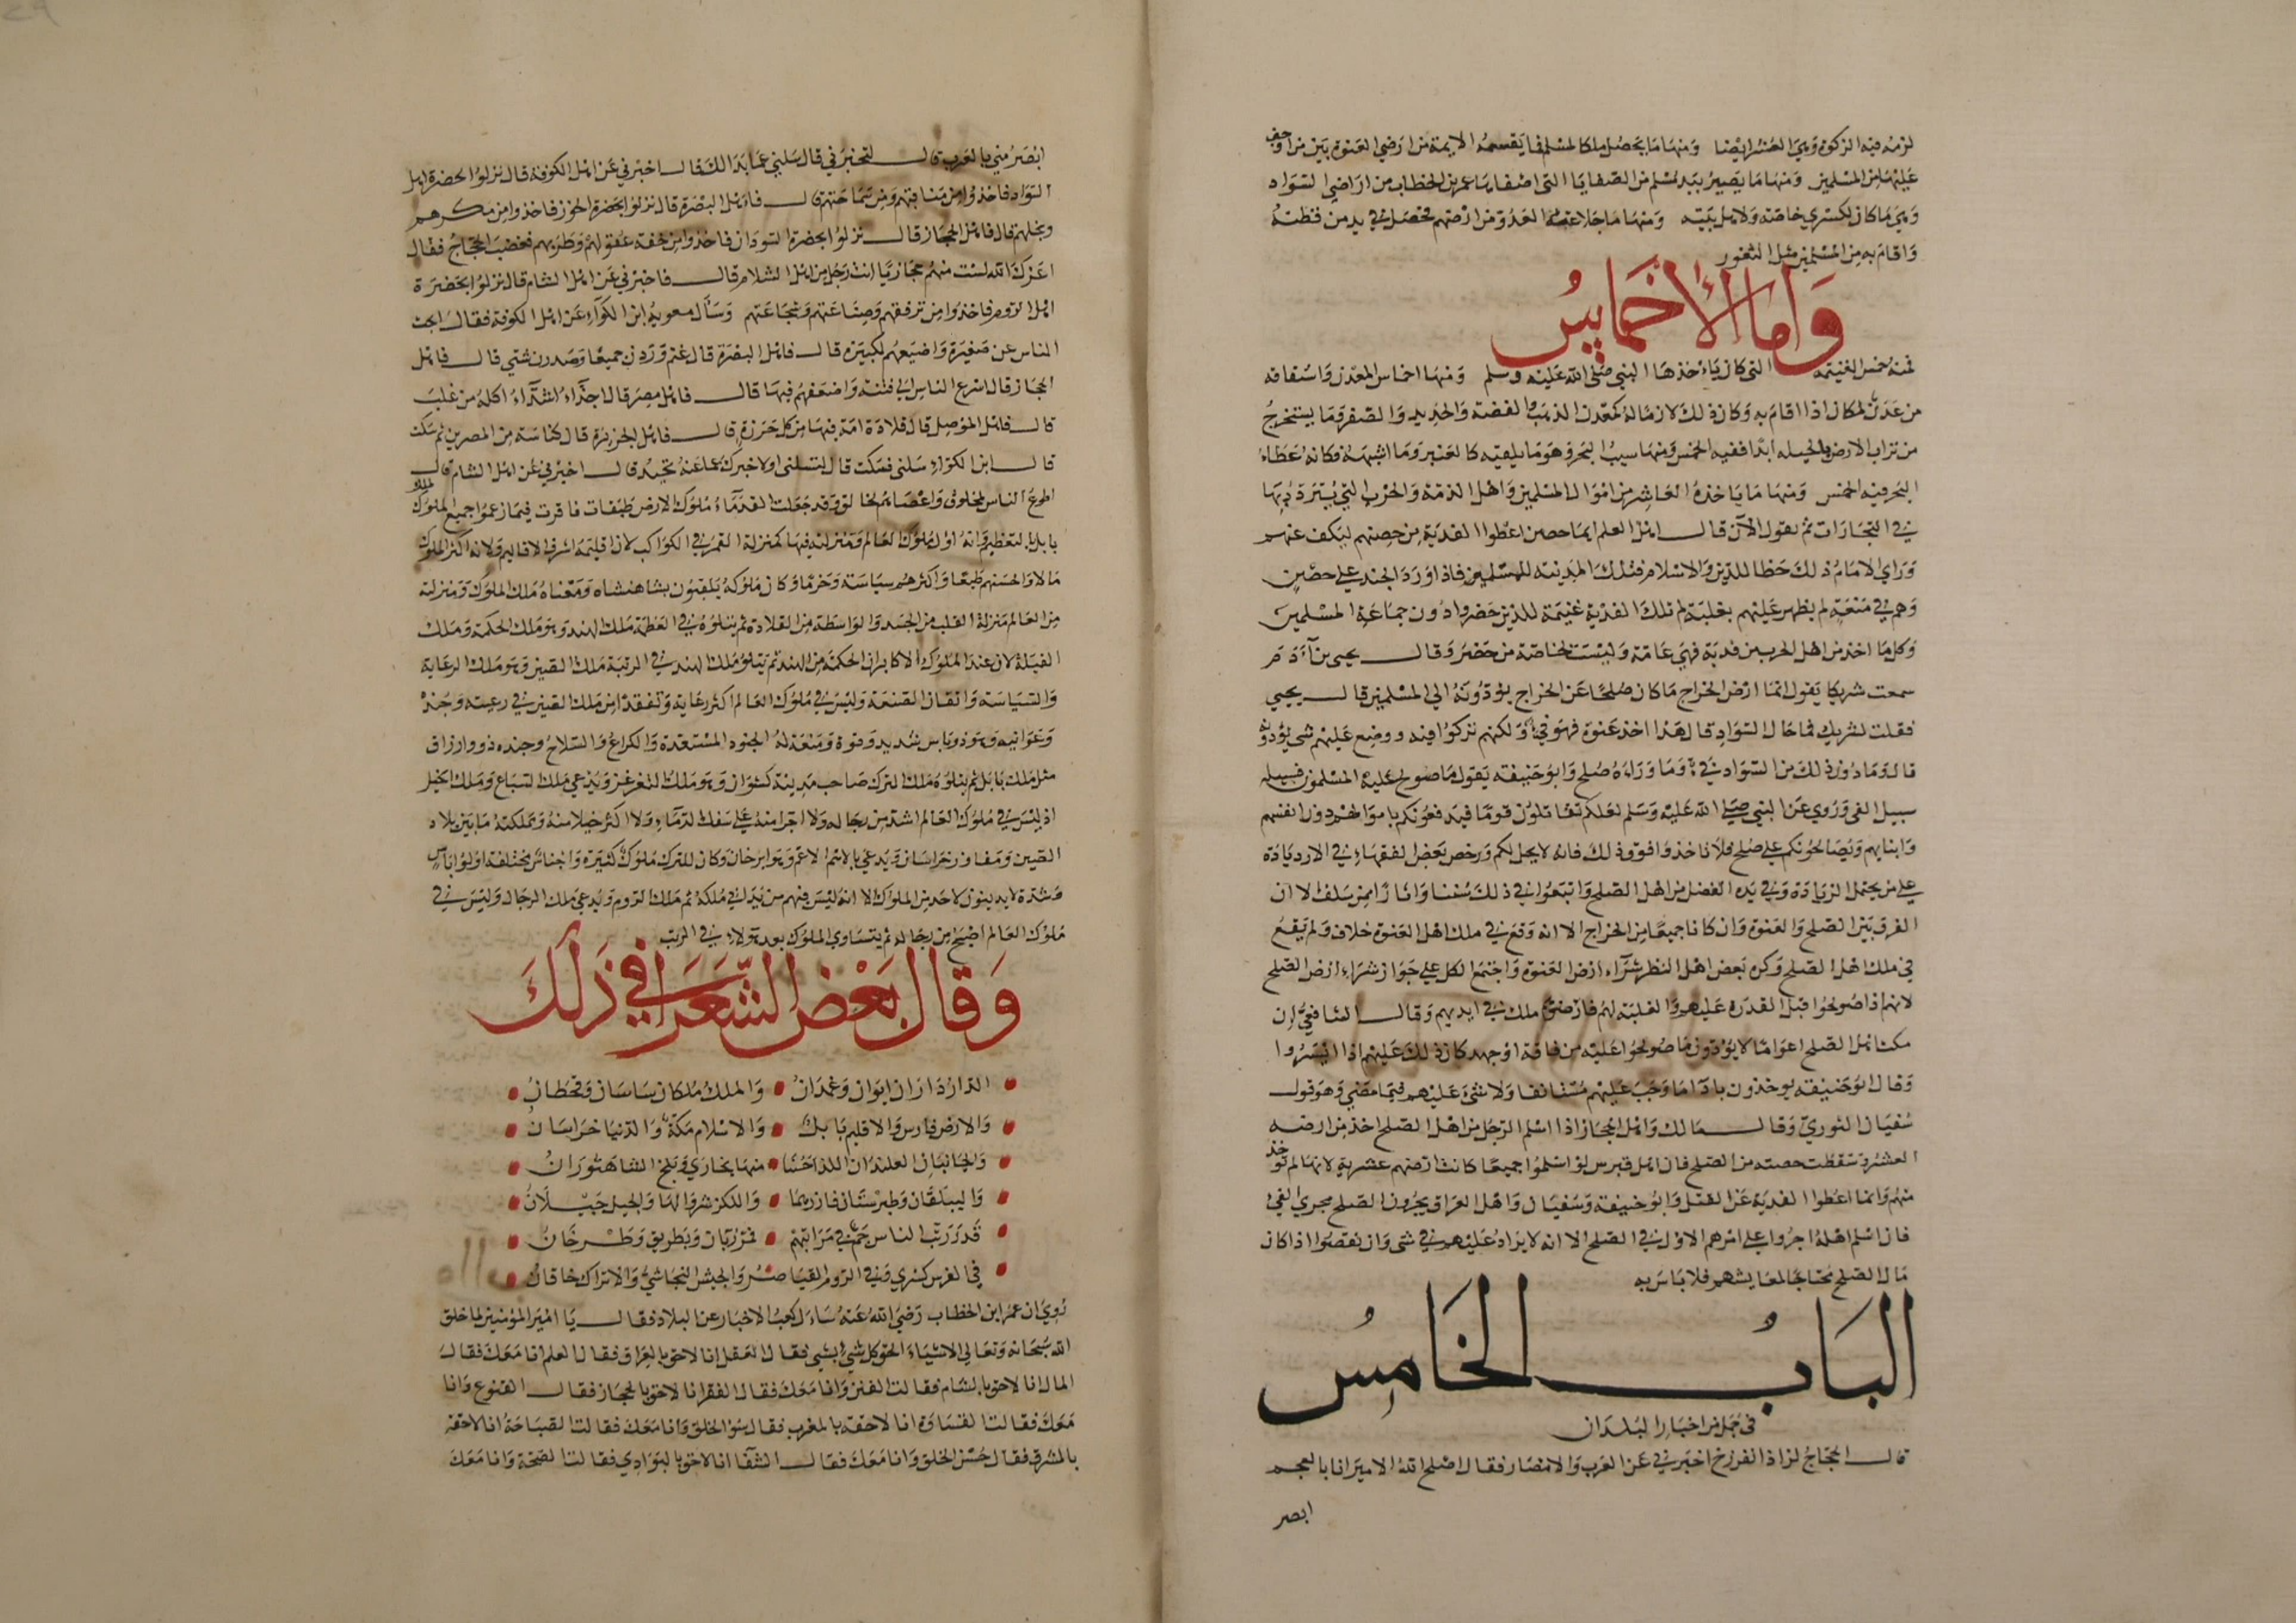 لزمه فيه الزكوة وهي العشر ايضا ومنها ما يحصل ملكا لمسلم فما يقسمه الايمة من اراضي العنوة بين من اوجف
عليها من المسلمين ومنها ما يصير بيد مسلم من الصفايا التي اصفاها عمر بن الخطاب من اراضي السواد
وهي ما كان لكسري خاصة ولاهل بيته ومنها ما جلا عنها العدو من ارضهم فحصل في يد من قطنه
واقام به من المسلمين مثل الثغور
وأما الأخماس
فمنه خمس الغنيمة التي كان ياءخذها النبي صلى الله عليه وسلم ومنها اخماس المعدن واشتقاقه
من عدن لمكان اذا اقام به وكان ذلك لازما له كمعدن الذهب والفضة والحديد والصفر وما يستخرج
من تراب الارض بالحيله ابدا ففيه الخمس ومنها سيب البحر وهو ما يلقيه كالعنبر وما اشبهه فكانه عطاء
البحر فيه الخمس ومنها ما ياخذه العاشر من اموال المسلمين واهل الذمة والحرب التي يتردد بها
في التجارات ثم يقول الآن قال اهل العلم ايما حصن اعطوا الفدية من حصنهم ليكف عنهم
وراي الامام ذلك حظا للدين والاسلام فتلك المدينة للمسلمين فاذا ورد الجند علي حصن
وهم في منعة لم يظهر عليهم بغلبة لم تلك الفدية غنيمة للذين حضروا دون جماعة المسلمين
وكل ما اخذ من اهل الحرب من فدية فهي عامة وليست لخاصة من حضر وقال يحيى بن آدم
سمعت شريكا يقول انما ارض الخراج ما كان صلحا عن الخراج يؤدونه الي المسلمين قال يحيي
فقلت لشريك فما حال السواد قال هذا اخذ عنوة فهو فيء ولكنهم تركوا فيه ووضع عليهم شي يؤدونه
قال وما دون ذلك من السواد فيء وما وراءه صلح وابو حنيفة يقول ما صولح عليه المسلمون فسبيله
سبيل الفي وروي عن النبي صلي الله عليه وسلم لعلكم تقاتلون قوما فيدفعونكم باموالهم دون انفسهم
وابنايهم ويصالحونكم علي صلح فلا تاخذوا فوق ذلك فانه لا يحل لكم ورخص بعض الفقهاء في الازدياده
علي من يحتمل الزيادة وفي يده الفضل من اهل الصلح واتبعوا في ذلك سننا واثارا ممن سلف الا ان
الفرق بين الصلح والعنوة وان كانا جميعا من الخراج الا انه وقع في ملك اهل العنوة خلاف ولم يقع
في ملك اهل الصلح وكره بعض اهل النظر شرآء ارض العنوة واجتمع الكل علي جواز شراء ارض الصلح
لانهم اذا صولحوا قبل القدرة عليهم والغلبة لهم فارضهم ملك في ايديهم وقال الشافعي ان
مكث اهل الصلح اعواما لا يؤدون ما صولحوا عليه من فاقة او جهد كان ذلك عليهم اذا ايسروا
وقال ابو حنيفه يوخذون باداء ما وجب عليهم مستانفا ولا شئ عليهم فيما مضي وهو قول
سفيان الثوري وقال مالك واهل الحجاز اذا اسلم الرجل من اهل الصلح اخذ من ارضه
العشر وسقطت حصته من الصلح فان اهل قبرس لو اسلموا جميعا كانت ارضهم عشرية لانها لم توخذ
منهم وانما اعطوا الفدية عن القتل وابو حنيفة وسفيان واهل العراق يجرون الصلح مجري الفي
فان اسلم اهله اجروا علي امرهم الاول في الصلح الا انه لا يزاد عليهم في شي وان نقصوا اذا كان
مال الصلح محتاجا لمعايشهم فلا باس به
الباب الخامس
في جمل من اخبار البلدان
قال الحجاج لزاذا نفروخ اخبرني عن العرب والامصار فقال اصلح الله الامير انا بالعجم
ابصر
ابصر مني بالعرب قال لتخبرني قال سلني عما بدا لك قال اخبرني عن اهل الكوفة قال نزلوا بحضرة اهل
السواد فاخذوا من مناقبهم ومن سماحتهم قال فاهل البصرة قال نزلوا بحضرة الخوز فاخذوا من مكرهم
وبخلهم قال فاهل الحجاز قال نزلوا بحضرة السودان فاخذوا من خفة عقولهم وطربهم فغضب الحجاج فقال
اعزك الله لست منهم حجازيا انت رجل من اهل الشام قال فاخبرني عن اهل الشام قال نزلوا بحضرة
اهل الروم فاخذوا من ترفقهم وصناعتهم وشجاعتهم وسأل معوية ابن الكوآء عن اهل الكوفة فقال ابحث
الناس عن صغيرة واضيعهم لكبيرة قال فاهل البصرة قال غنم وردن جميعا وصدرن شتي قال فاهل
الحجاز قال اسرع الناس الي فتنة واضعفهم فيها قال فاهل مصر قال اجدآء اشدآء اكلة من غلب
قال فاهل الموصل قال قلادة امة فيها من كل خرزة قال فاهل الجزيرة قال كناسة من المصرين ثم سكت
قال ابن الكوآء سلني فسكت قال لتسلني او لاخبرك عما عنه تحيد قال اخبرني عن اهل الشام قال
اطوع الناس لمخلوق واعصاهم لخالق وقد جعلت القدمآء ملوك الارض طبقات فاقرت فيما زعموا جميع الملوك لملك
بابل بالتعظيم وانه اول ملوك العالم ومنزلته فيها كمنزلة القمر في الكواكب لان اقليمه اشرف الاقاليم ولانه اكثر الملوك
مالا واحسنهم طبعا واكثرهم سياسة وحزما وكان ملوكه يلقبون بشاهنشاه ومعناه ملك الملوك ومنزلته
من العالم منزلة القلب من الجسد والواسطة من القلادة ثم يتلوه في العظمة ملك الهند وهو ملك الحكمة وملك
الفيلة لان عند الملوك الاكابر ان الحكمة من الهند ثم يتلو ملك الهند في الرتبة ملك الصين وهو ملك الرعاية
والسياسة واتقان الصنعة وليس في ملوك العالم اكثر رعاية وتفقدا من ملك الصين في رعيته وجنده
وعوانيه وهو ذو باس شديد وقوة ومنعة له الجنود المستعدة والكراع والسلاح وجنده ذو وارزاق
مثل ملك بابل ثم يتلوه ملك الترك صاحب مدينة كشوان وهو ملك التغزغز ويدعي ملك السباع وملك الخيل
اذ ليس في ملوك العالم اشد من رجاله ولا اجرا منه علي سفك الدماء ولا اكثر خيلا منه ومملكته ما بين بلاد
الصين ومفاوز خراسان ويدعي بالاسم الاعم وهو ايرخان وكان للترك ملوك كثيرة واجناس مختلفة اولوا باس
وشدة لا يدينون لاحد من الملوك الا انه ليس فيهم من يداني ملكه ثم ملك الروم ويدعي ملك الرجال وليس في
ملوك العالم اصبح من رجاله ثم يتساوي الملوك بعد هولاء في المرتب
وقال بعض الشعرا في ذلك
الدار داران ايوان وغمدان والملك ملكان ساسان وقحطان
والارض فارس والاقليم بابك والاسلام مكة والدنيا خراسان
والجانبان العلندان اللذا حسنا منها بخاري وبلخ الشاه توران
والبيلقان وطبرستان فازرهما واللكز شروانها والجيل جيلان
قد رتب الناس جم في مراتبهم فمرزبان وبطريق وطرخان
في الفرس كسري وفي الروم القياصر والحبش النجاشي والاتراك خاقان
روي ان عمر ابن الخطاب رضي الله عنه ساءل كعب الاخبار عن البلاد فقال يا امير المؤمنين لما خلق
الله سبحانه وتعالي الاشياء الحق كل شيء بشي فقال العقل انا لاحق بالعراق فقال العلم انا معك فقال
المال انا لاحق بالشام فقالت الفتن وانا معك فقال الفقر انا لاحق بالحجاز فقال القنوع وانا
معك فقالت القساوة انا لاحقة بالمغرب فقال سوء الخلق وانا معك فقالت الصباحة انا لاحقة
بالمشرق فقال حسن الخلق وانا معك فقال الشقآ انا لاحق بالبوادي فقالت الصحة وانا معك